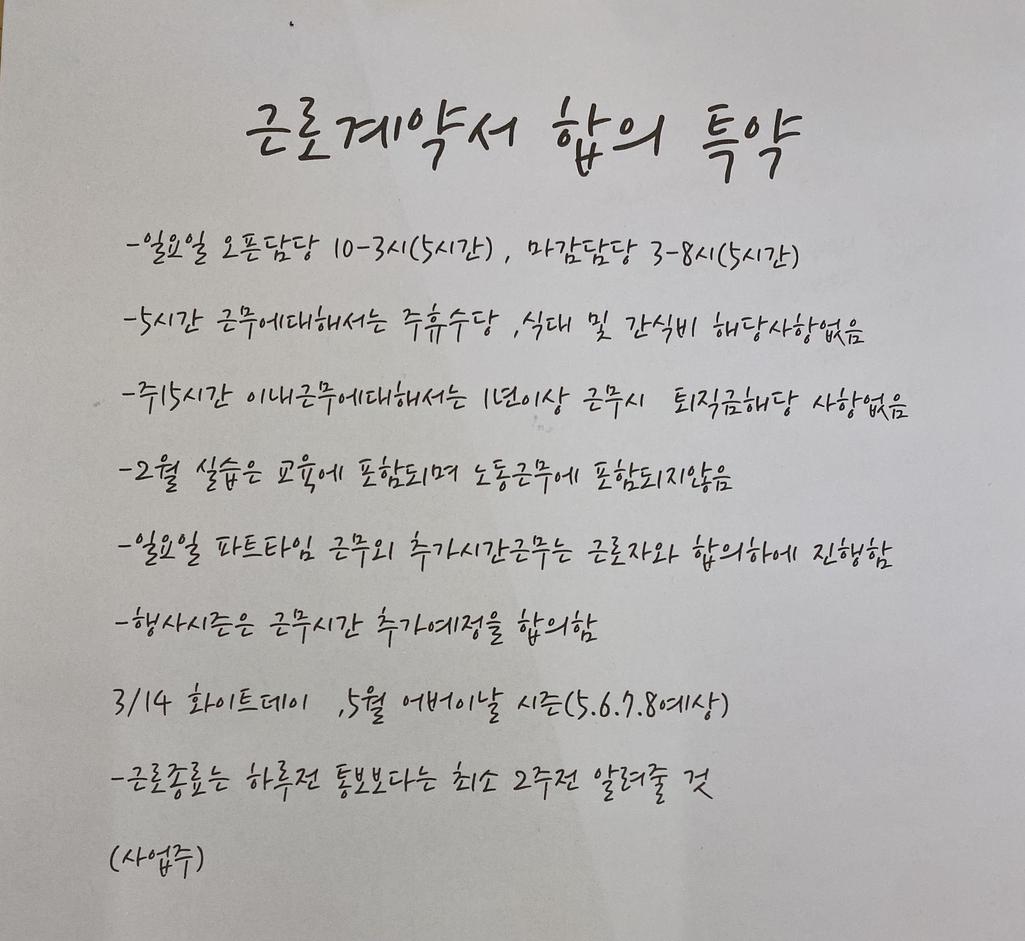 근로계약서 합의 특약
-일요일 오픈담당 10-3시(5시간), 마감담당 3-8시(5시간)
-5시간 근무에대해서는 주휴수당 ,식대 및 간식비 해당사항없음
-주15시간 이내근무에대해서는 1년이상 근무시 퇴직금해당 사항없음
-2월 실습은 교육에 포함되며 노동근무에 포함되지않음
-일요일 파트타임 근무외 추가시간근무는 근로자와 합의하에 진행함
-행사시즌은 근무시간 추가예정을 합의함
3/14 화이트데이 ,5월 어버이날 시즌(5.6.7.8예상)
-근로종료는 하루전 통보보다는 최소 2주전 알려줄 것
(사업주)